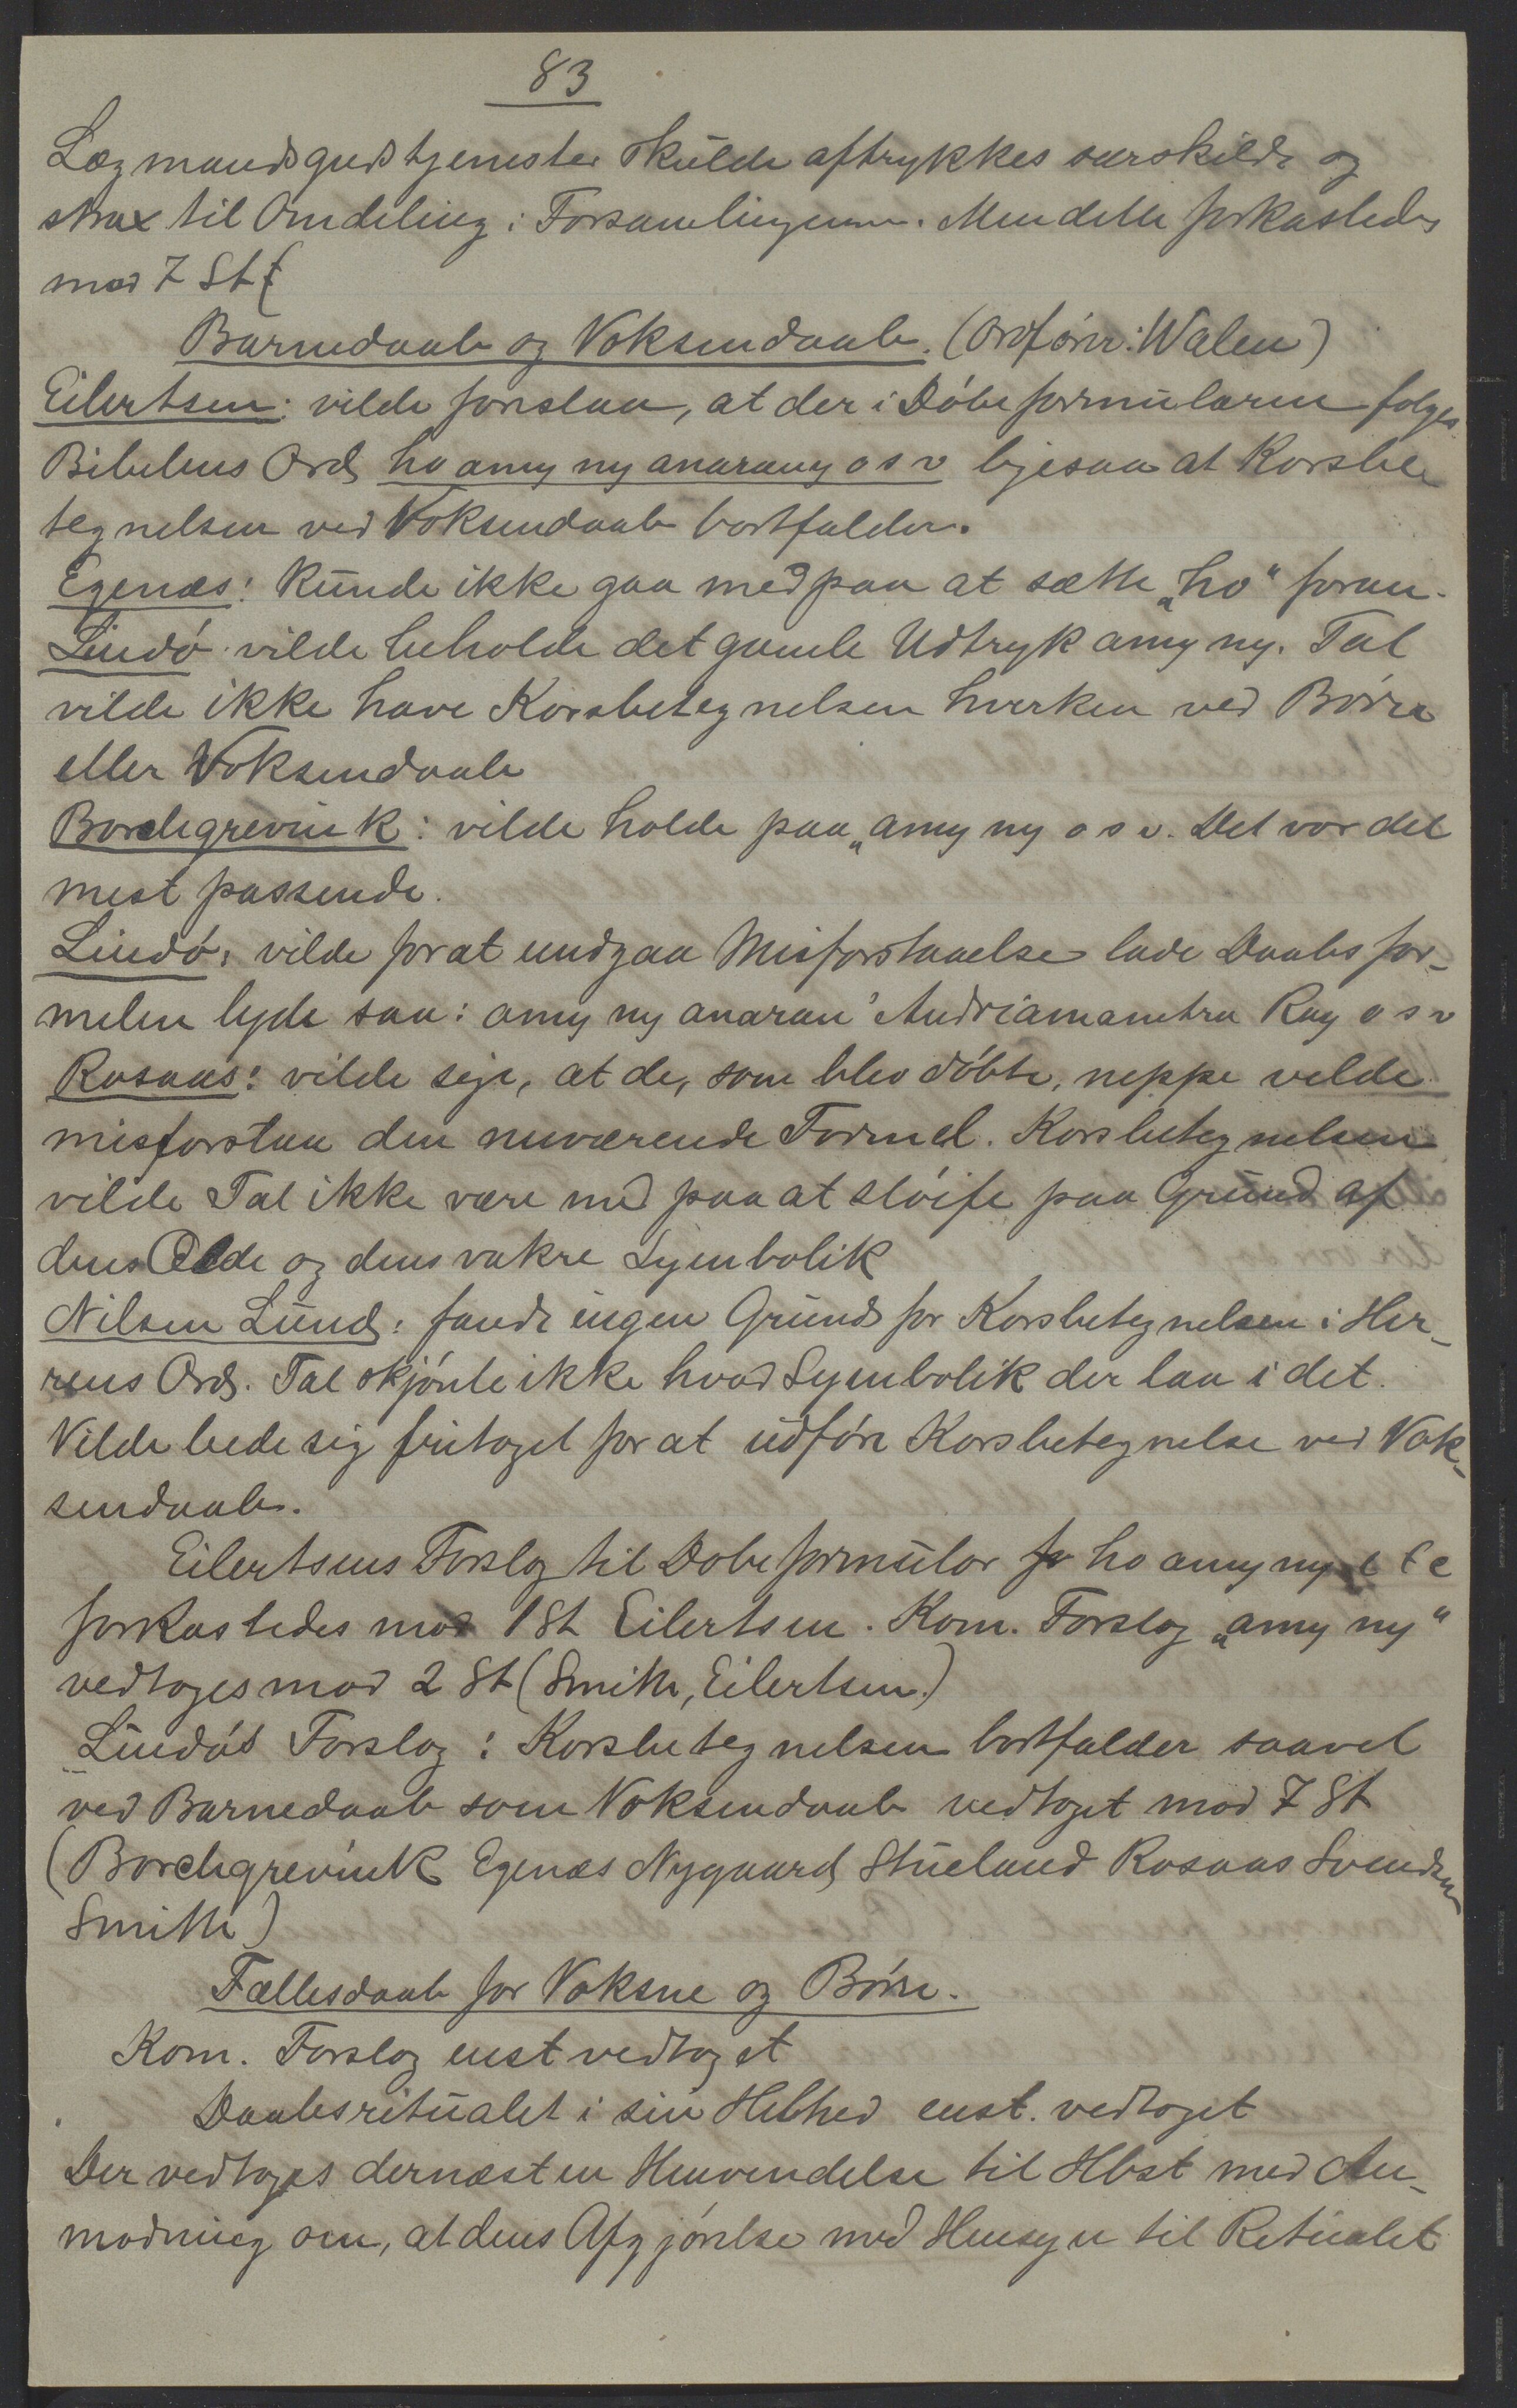 83
Lægmandsgudstjenester skulde aftrykkes særskildt og
strax til Omdeling i Forsamlingerne. Men dette forkastedes
mod 7 St
Barnedaab og Voksendaab. (Ordfører: Walen)
Eilertsen: vilde foreslaa, at der i Døbeformularen følges
Bibelens Ord ho amy ny anarany o s v ligesaa at Korsbe
tegnelsen ved Voksendaab bortfalder.
Egenæs: Kunde ikke gaa med paa at sætte "ho" foran.
Lindø vilde beholde det gamle Udtryk amy ny. Tal
vilde ikke have Korsbetegnelsen hverken ved Børne
eller Voksendaab
Borchgrevink: vilde holde paa "amy ny o s v. Det var det
mest passende.
Lindø: vilde for at undgaa Misforstaaelse lade Daabsfor-
melen lyde saa: amy ny anaran' Andriamanitra Ray o s v
Rosaas: vilde sige, at de, som blev døbte, neppe vilde
misforstaa den nuværende Formel. Korsbetegnelsen
vilde Tal ikke være med paa at sløife paa Grund af
dens Ælde og dens vakre Symbolik
Nilsen Lund: fandt ingen Grund for Korsbetegnelsen i Her-
rens Ord. Tal skjønte ikke hvad Symbolik der laa i det.
Vilde bede sig fritaget for at udføre Korsbetegnelse ved Vok-
sendaab.
Eilertsens Forslag til Døbeformular ho amy ny etc
forkastedes mod 1 St Eilertsen. Kom. Forslag "amy ny"
vedtoges mod 2 St (Smith, Eilertsen.)
Lindøs Forslag: Korsbetegnelsen bortfalder saavel
ved Barnedaab som Voksendaab vedtoget mod 7 St
(Borchgrevink Egenæs Nygaard Stueland Rosaas Svendsen
Smith)
Fællesdaab for Voksne og Børn.
Kom. Forslag enst vedtaget
Daabsritualet i sin Helhed enst. vedtaget
Der vedtoges dernæst en Henvendelse til Hbst med An-
modning om, at dens Afgjørelse med Hensyn til Ritualet